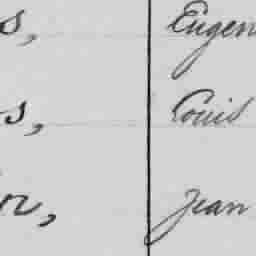 s, Eugen
s, Louis
n, Jean